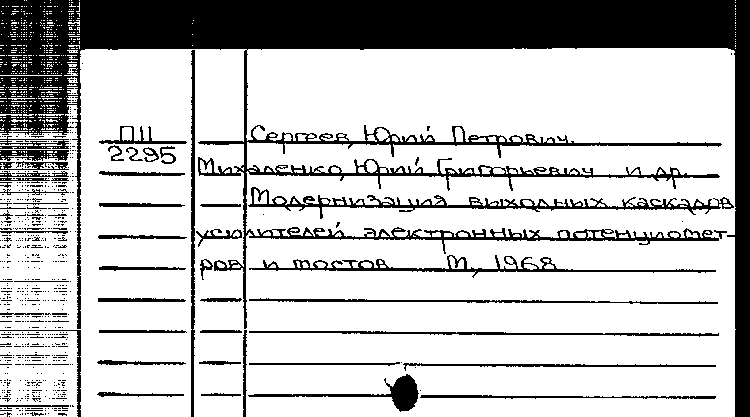 П11 Сергеев, Юрий Петрович.
2295 Михаленко, Юрий Григорьевич и др.
Модернизация выходных каскадов
усилителей электронных потенциомет-
ров и мостов М., 1968